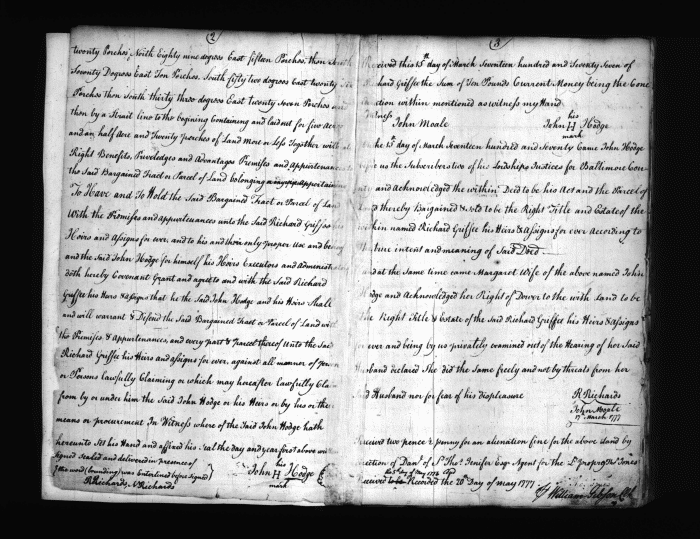 (2)
twenty Perches North Eighty nine degrees East fifteen Perches then South
Seventy Degrees East Ten Perches South fifty two degrees East twenty
Perches then South thirty three degrees East twenty Seven Perches
then by a Strait line to the begining Containing and laid out for five Acres
and an half Acre and Twenty perches of Land more or Less Together with
Right Benefits, Priviledges and Advantages Premises and Appurtenances
the Said Bargained Tract or Parcel of Land belonging appertaining
To Have and To Hold the Said Bargained Tract or Parcel of Land
With the Premises and appurtenances unto the Said Richard Griffee his
Heirs and Assigns for ever and to his and their only proper Use and
and the Said John Hodge for himself his Heirs Executors and Administrators
doth hereby Covenant Grant and agree to and with the Said Richard
Griffee his Heirs & Assigns that he the Said John Hodge and his Heirs Shall
and will warrant & Defend the Said Bargained Tract or Parcel of Land with
the Premises & Appurtenances, and every part & Parcel thereof unto the Said
Richard Griffee his Heirs and Assigns for ever, against all manner of Person
or Persons lawfully Claiming or which may hereafter lawfully Claim
from by or under him the Said John Hodge or his Heirs or by his or their
means or procurement In Witness where of the Said John Hodge hath
hereunto Set his Hand and affixed his Seal the day and year first above
Signed Sealed and delivered in presence of
the word (bounding) was Enterlined before signed
RRichards NRichards
his
John H Hodge
mark
(3)
Received this 15th of March Seventeen hundred and Seventy Seven of
Richard Griffee the Sum of Ten Pounds Current Money being the
within mentioned as witness my Hand
Witness
John Moale
his
John H Hodge
mark
the 15th day of March Seventeen hundred and Seventy Came John Hodge
us the Subscribers two of his Lordships Justices for Baltimore
and Acknowledged the within Deed to be his Act and the Parcel of
thereby Bargained & to be the Right Title and Estate of the
within named Richard Griffee his Heirs & Assigns for ever According to
intent and meaning of Said Deed
and at the Same time came Margaret Wife of the above named John
Hodge and Acknowledged her Right of Dower to the with Land to be
the Right Title & Estate of the Said Richard Griffee his Heirs & Assigns
for ever and being by us privately examined out of the Hearing of her Said
Husband declared She did the Same freely and not by threats from her
Said Husband nor for fear of his displeasure
R Richards
John Moale
17 March 1777
Received two pence & penny for an alienation fine for the above land by
direction of Danl of St Thos Jenifer Esqr Agent for the
Recorded the 20th Day of May 1777
William Gibson Clk